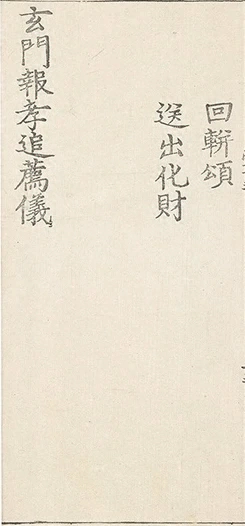 回軿頌
送出化財
玄門報孝追薦儀